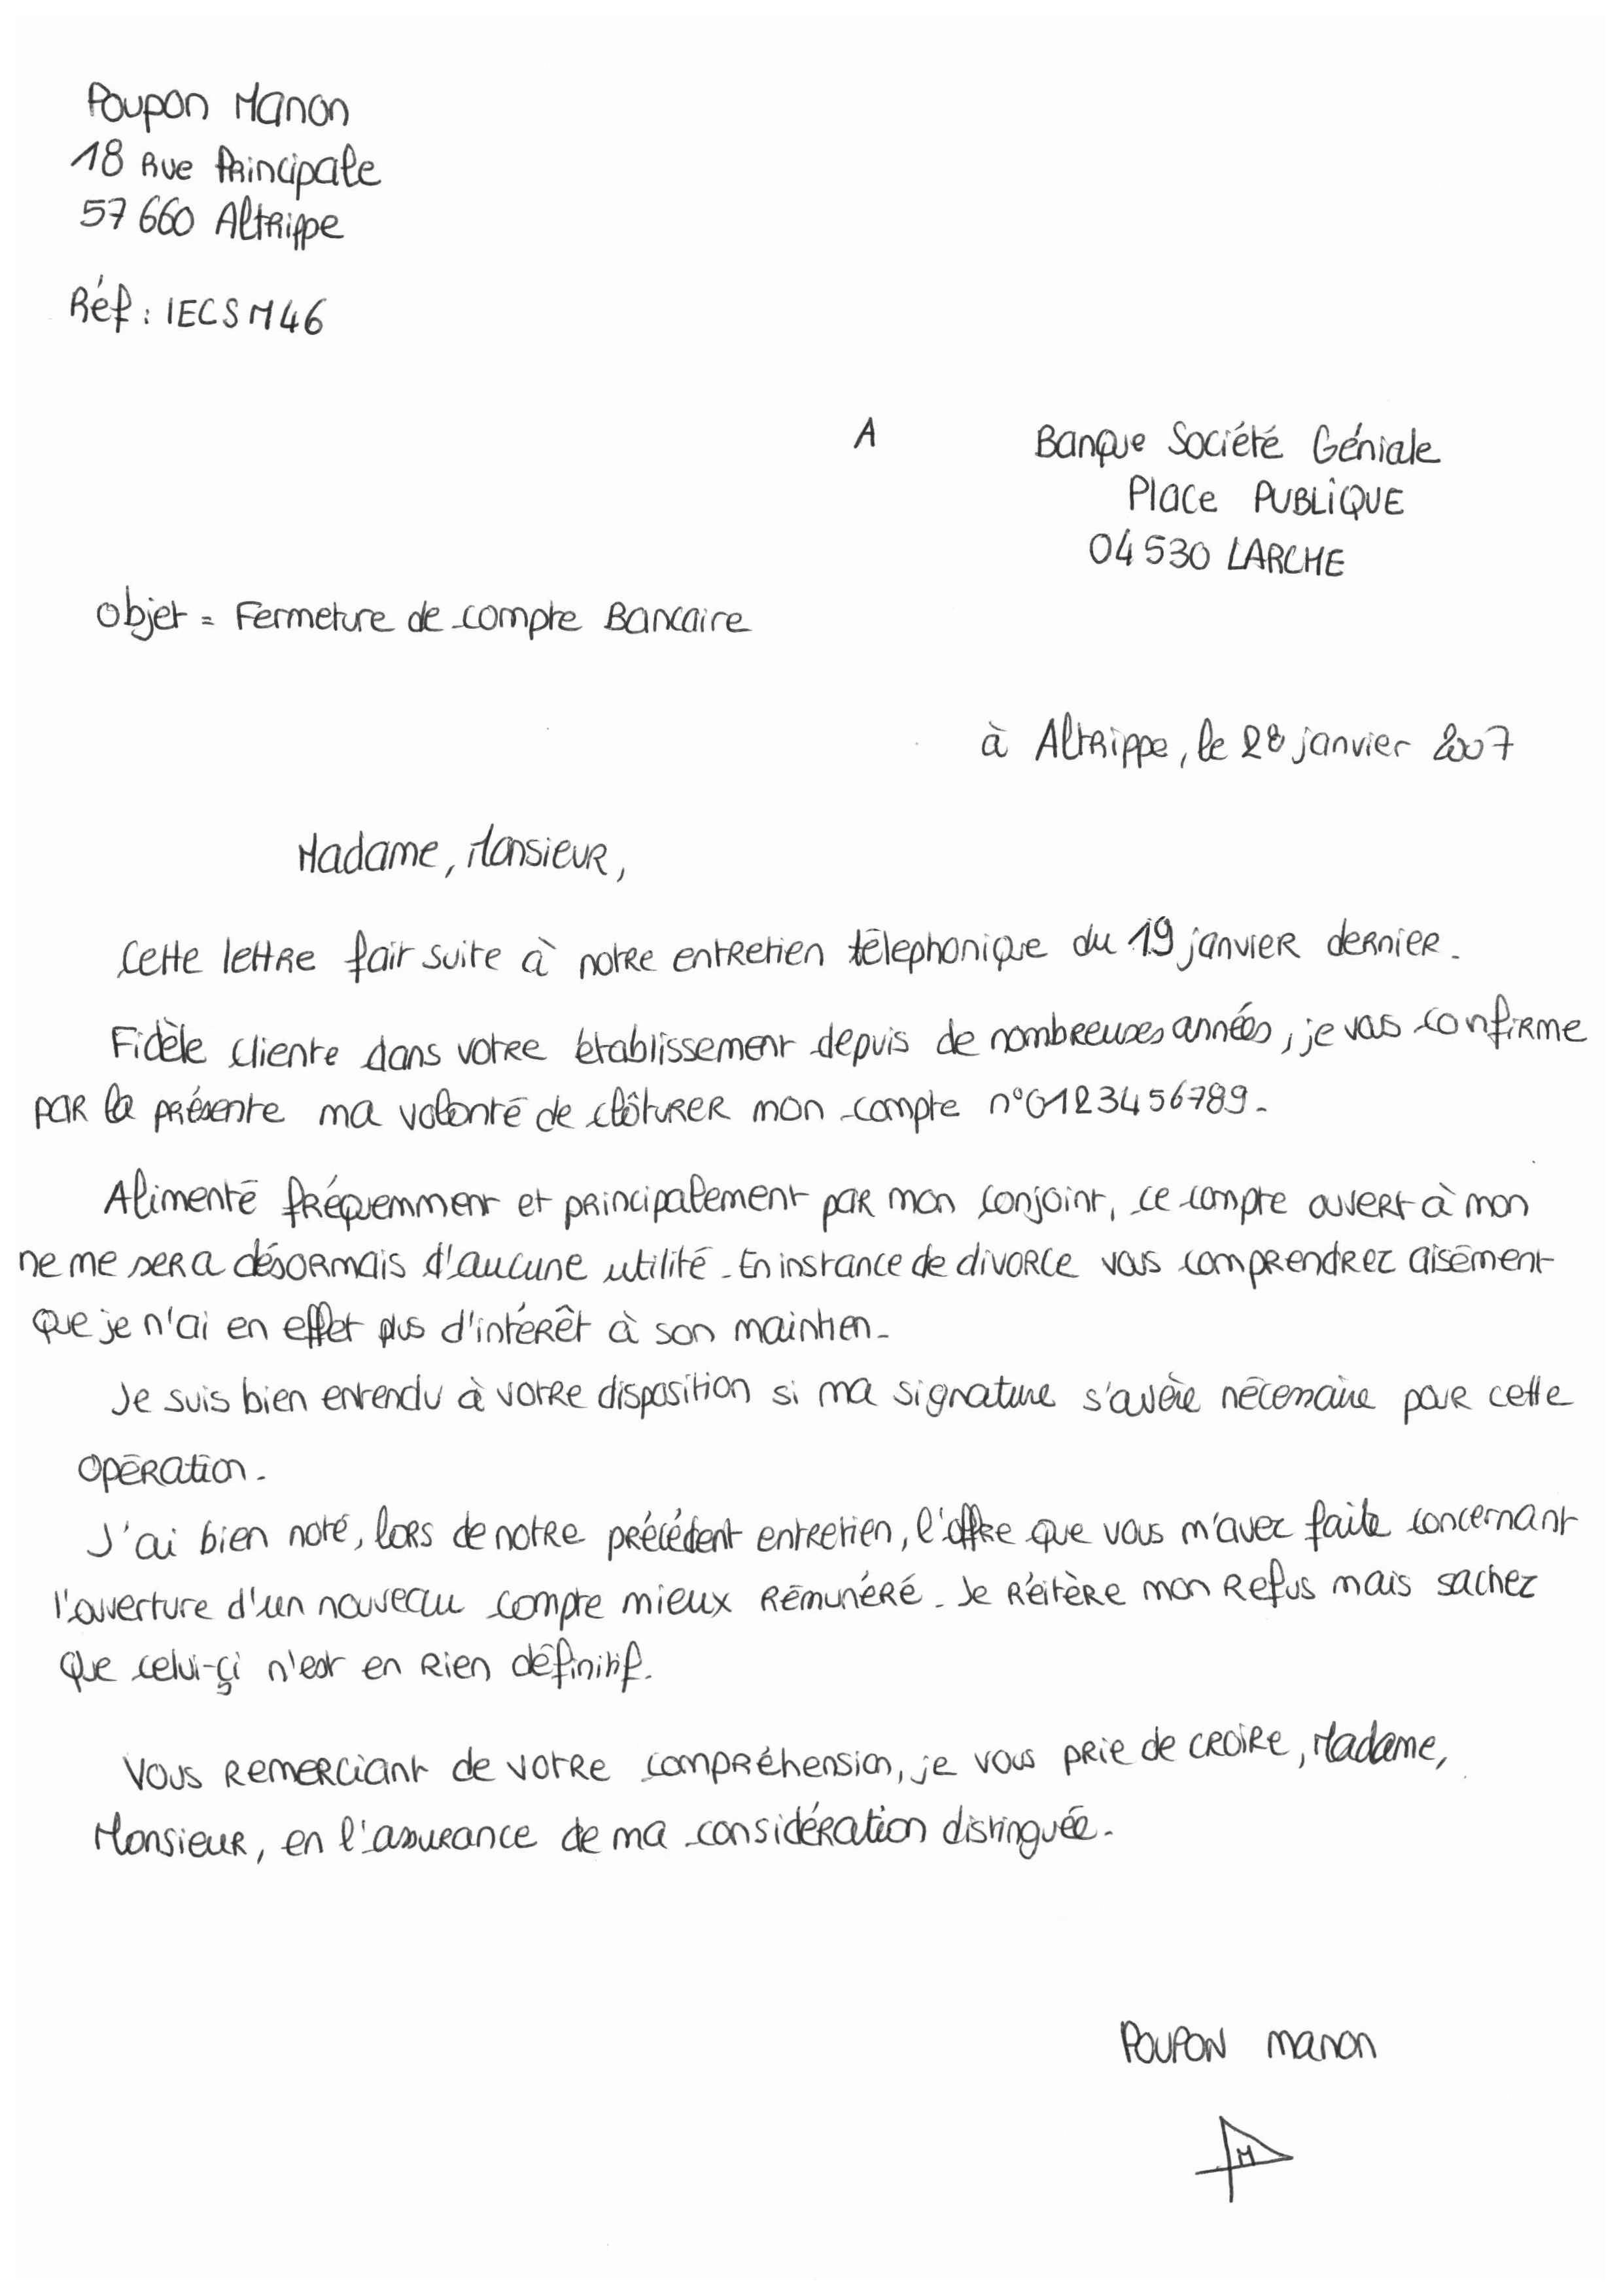 Poupon Manon
18 Rue Principale
57 660 Altrippe
Réf : IECSM46
A
Banque Société Géniale
Place PUBLIQUE
04 530 LARCHE
Objet = Fermeture de compte Bancaire
à Altrippe, le 28 janvier 2007
Madame, Monsieur,
Cette lettre fait suite à notre entretien télephonique du 19 janvier dernier.
Fidèle cliente dans votre établissement depuis de nombreuses années, je vous confirme
par la présente ma volonté de clôturer mon compte n°0123456789.
Alimenté fréquemment et principalement par mon conjoint, ce compte ouvert à mon
ne me sera désormais d'aucune utilité. En instance de divorce vous comprendrez aisément
que je n'ai en effet plus d'intérêt à son maintien.
Je suis bien entendu à votre disposition si ma signature s'avère nécessaire pour cette
opération.
J'ai bien noté, lors de notre précédent entretien, l'offre que vous m'avez faite concernant
l'ouverture d'un nouveau compte mieux rémunéré. Je réitère mon refus mais sachez
que celui-çi n'est en rien définitif.
Vous remerciant de votre compréhension, je vous prie de croire, Madame,
Monsieur, en l'assurance de ma considération distinguée.
POUPON manon
M